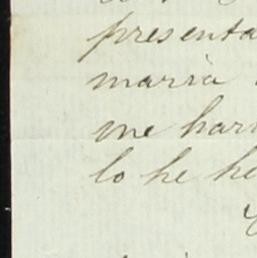 presenta
maria
me har
lo he he